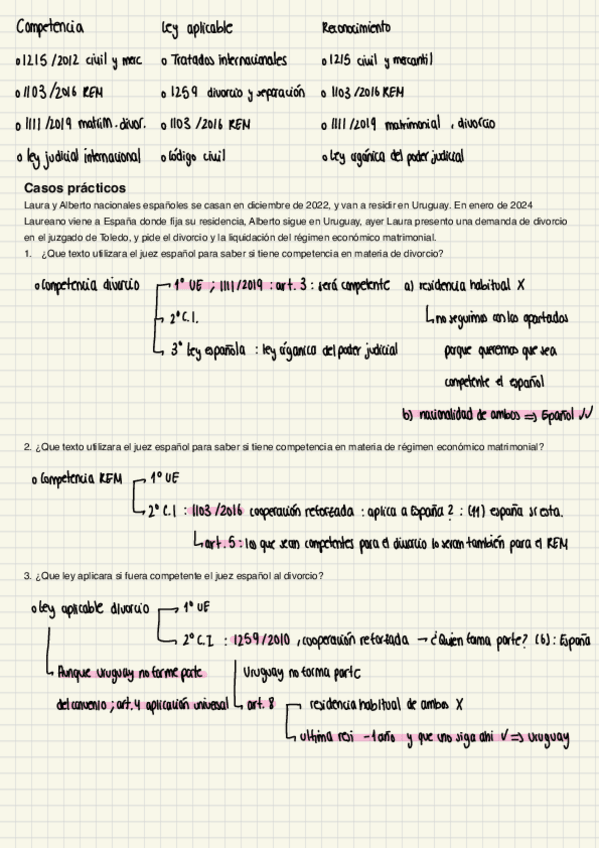 Competencia Ley aplicable Reconocimiento
o 1215/2012 civil y merc o Tratados internacionales o 1215 civil y mercantil
o 1103/2016 REM o 1259 divorcio y separación o 1103/2016 REM
o 1111/2019 matrim. divor. o 1103/2016 REM o 1111/2019 matrimonial, divorcio
o ley judicial internacional o Código civil o Ley orgánica del poder judicial
Casos prácticos
Laura y Alberto nacionales españoles se casan en diciembre de 2022, y van a residir en Uruguay. En enero de 2024
Laureano viene a España donde fija su residencia, Alberto sigue en Uruguay, ayer Laura presento una demanda de divorcio
en el juzgado de Toledo, y pide el divorcio y la liquidación del régimen económico matrimonial.
1. ¿Que texto utilizara el juez español para saber si tiene competencia en materia de divorcio?
o Competencia divorcio 1º UE ; 1111/2019 : art. 3 : será competente a) residencia habitual X
2º C.I. no seguimos con los apartados
3º ley española : ley órganica del poder judicial porque queremos que sea
competente el español
b) nacionalidad de ambos => Español √√
2. ¿Que texto utilizara el juez español para saber si tiene competencia en materia de régimen económico matrimonial?
o Competencia REM 1º UE
2º C.I : 1103/2016 cooperación reforzada : aplica a España ? : (11) españa si esta.
art. 5 : los que sean competentes para el divorcio lo seran también para el REM
3. ¿Que ley aplicara si fuera competente el juez español al divorcio?
o ley aplicable divorcio 1º UE
2º C.I : 1259/2010 , cooperación reforzada → ¿Quien forma parte? (6) : España
Aunque uruguay no forme parte Uruguay no forma parte
del convenio ; art. 4 aplicación universal art. 8 residencia habitual de ambos X
ultima resi -1 año y que uno siga ahi √ => Uruguay